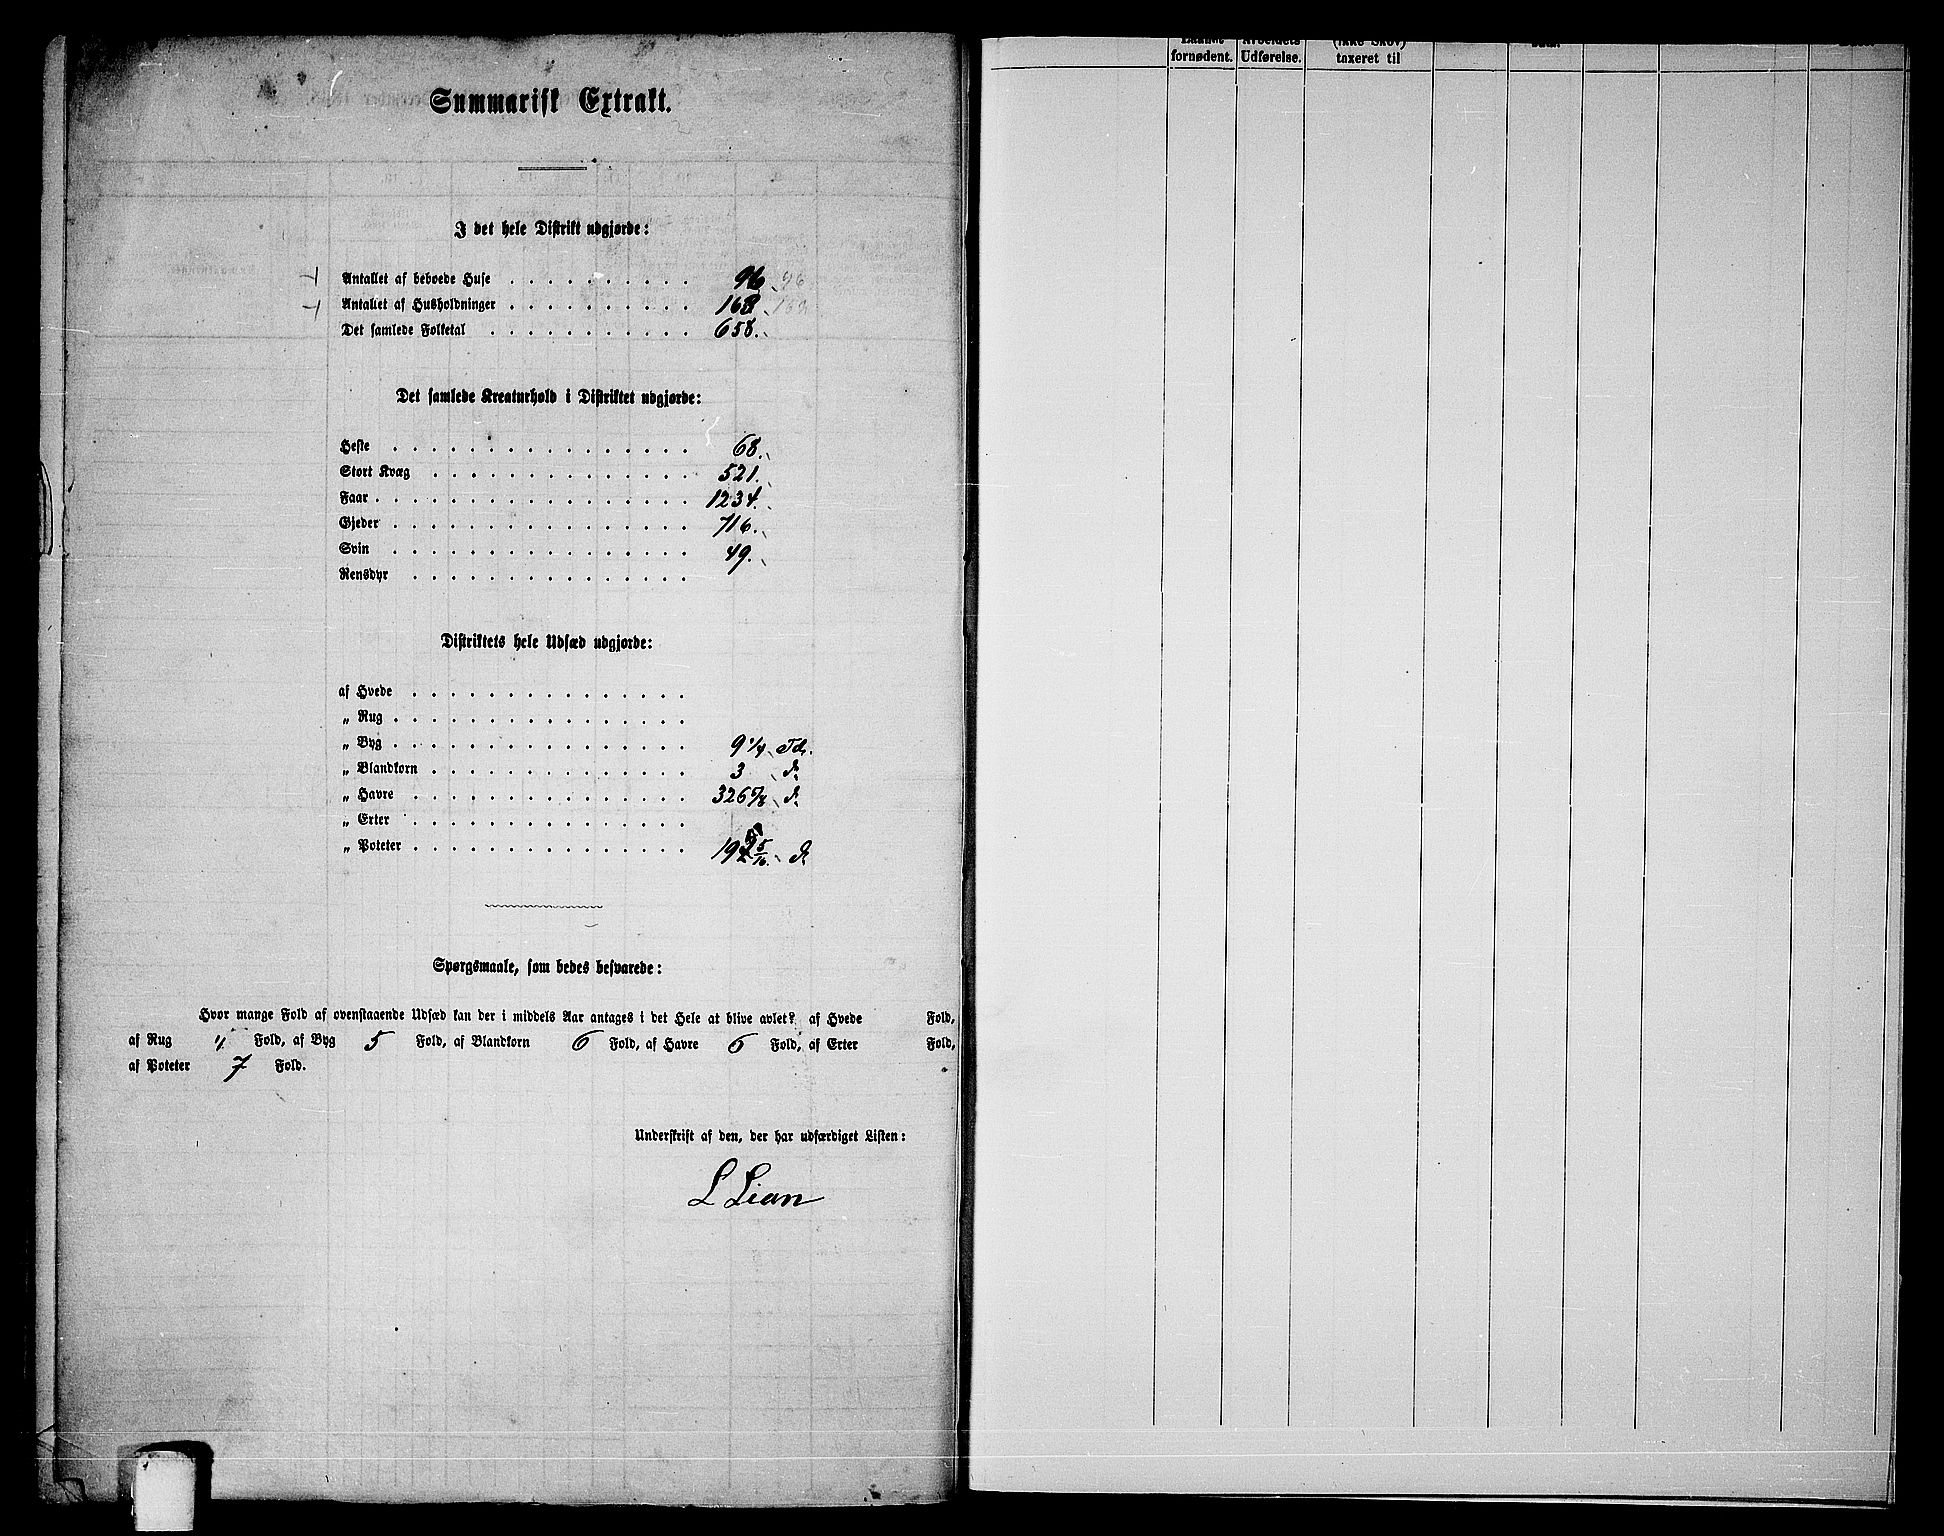 Summarisk Extrakt.
I det hele Distrikt udgjorde:
Antallet af beboede Huse . . . . . . . . . . 96 96
Antallet af Husholdninger . . . . . . . . . . 168
Det samlede Folketal . . . . . . . . . . . 658.
Det samlede Kreaturhold i Distriktet udgjorde:
Heste . . . . . . . . . . . . . . . . 68.
Stort Kvæg . . . . . . . . . . . . . . 521.
Faar . . . . . . . . . . . . . . . . . 1234.
Gjeder . . . . . . . . . . . . . . . . 716.
Svin . . . . . . . . . . . . . . . . 49.
Rensdyr . . . . . . . . . . . . . . .
Distriktets hele Udsæd udgjorde:
af Hvede . . . . . . . . . . . . . . .
„ Rug . . . . . . . . . . . . . . . .
„ Byg . . . . . . . . . . . . . . . . 9 1/4 Td.
„ Blandkorn . . . . . . . . . . . . . . 3 d.
„ Havre . . . . . . . . . . . . . . . 326 5/8 d.
„ Erter . . . . . . . . . . . . . . .
„ Poteter . . . . . . . . . . . . . . . 5/16. d.
Spørgsmaale, som bedes besvarede:
Hvor mange Fold af ovenstaaende Udsæd kan der i middels Aar antages i det Hele at blive avlet? af Hvede Fold,
af Rug " Fold, af Byg 5 Fold, af Blandkorn 6 Fold, af Havre 6 Fold, af Erter Fold,
af Poteter 7 Fold.
Underskrift af den, der har udfærdiget Listen:
L Lian
fornødent.
Arbeidets
Udførelse.
(ikke Skov)
taxeret til